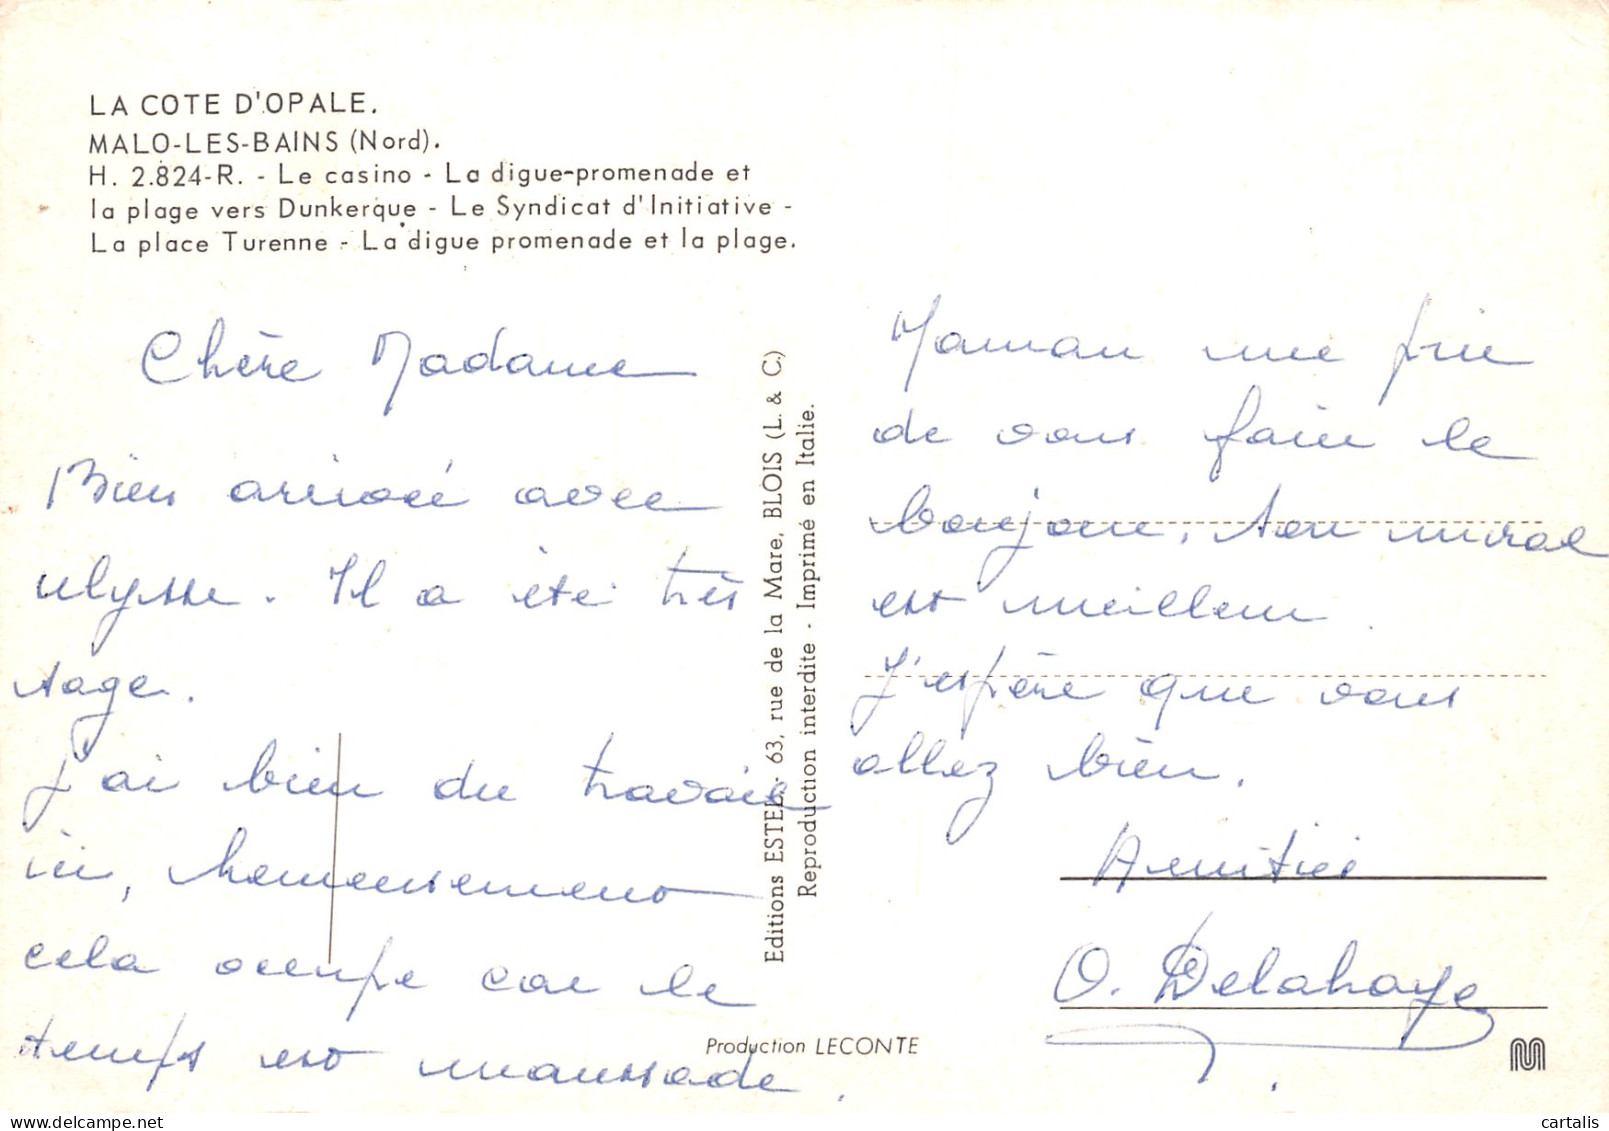 LA COTE D'OPALE.
MALO-LES-BAINS (Nord).
H. 2.824-R. - Le casino - La digue-promenade et
la plage vers Dunkerque - Le Syndicat d'Initiative -
La place Turenne - La digue promenade et la plage.
Chère Madame
Bien arrivée avec
ulysse. Il a été très
sage.
J'ai bien du travail
ici, heureusement
cela occupe car le
temps est maussade.
Editions ESTEL - 63, rue de la Mare, BLOIS (L. & C.)
Reproduction interdite - Imprimé en Italie.
Maman me prie
de vous faire le
bonjour, son moral
est meilleur.
J'espère que vous
allez bien.
Amitiés
O. Delahaye
Production LECONTE
cartalis